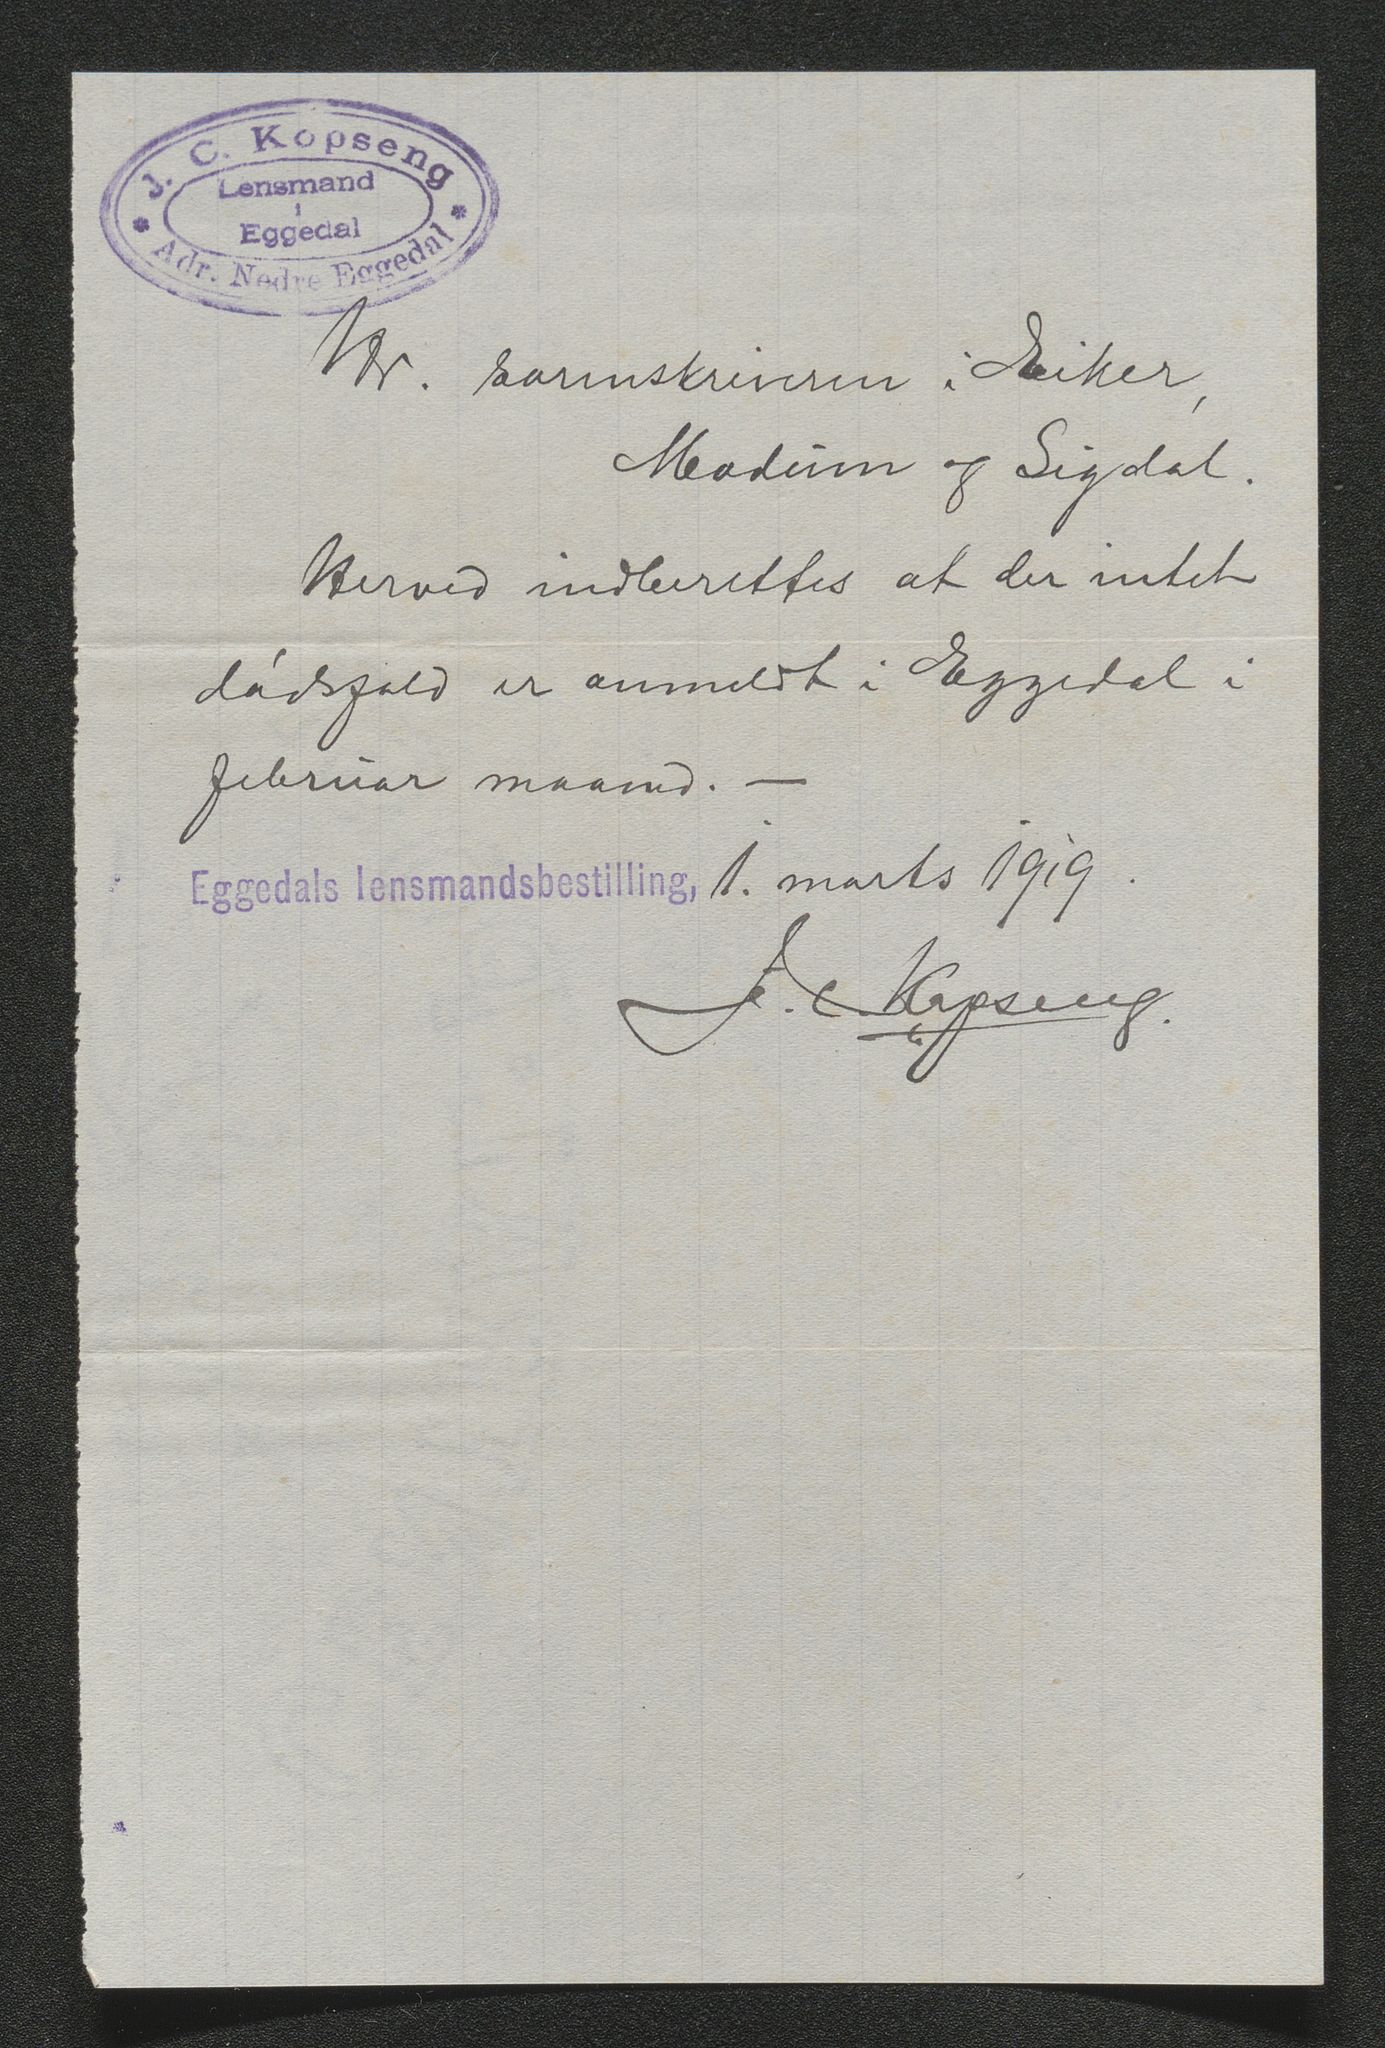 J. C. Kopseng
Lensmand
i
Eggedal
Adr. Nedre Eggedal
Hr. sorenskriveren i Eiker,
Modum og Sigdal.
Herved indberettes at der intet
dödsfald er anmeldt i Eggedal i
februar maaned. —
Eggedals lensmandsbestilling, 1. marts 1919.
J. C. Kopseng.